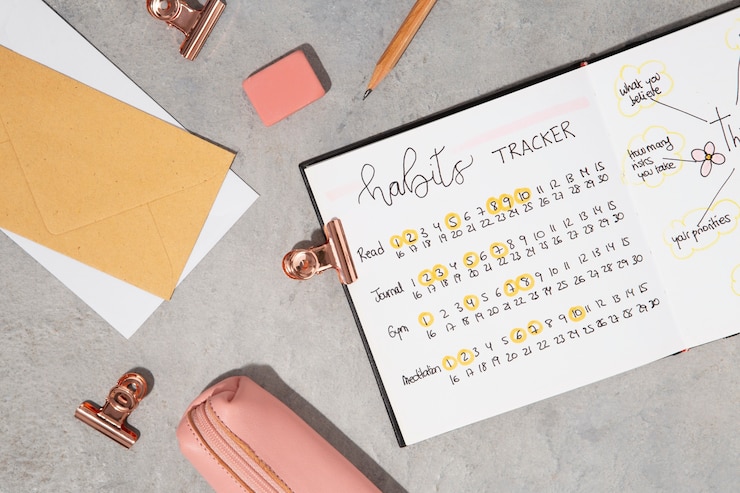 habits TRACKER
Read 1 2 3 4 5 6 7 8 9 10 11 12 13 14 15
16 17 18 19 20 21 22 23 24 25 26 27 28 29 30
Journal 1 2 3 4 5 6 7 8 9 10 11 12 13 14 15
16 17 18 19 20 21 22 23 24 25 26 27 28 29 30
Gym 1 2 3 4 5 6 7 8 9 10 11 12 13 14 15
16 17 18 19 20 21 22 23 24 25 26 27 28 29 30
meditation 1 2 3 4 5 6 7 8 9 10 11 12 13 14 15
16 17 18 19 20 21 22 23 24 25 26 27 28 29 30
what you
believe
How many
risks
you take
your priorities
Thi